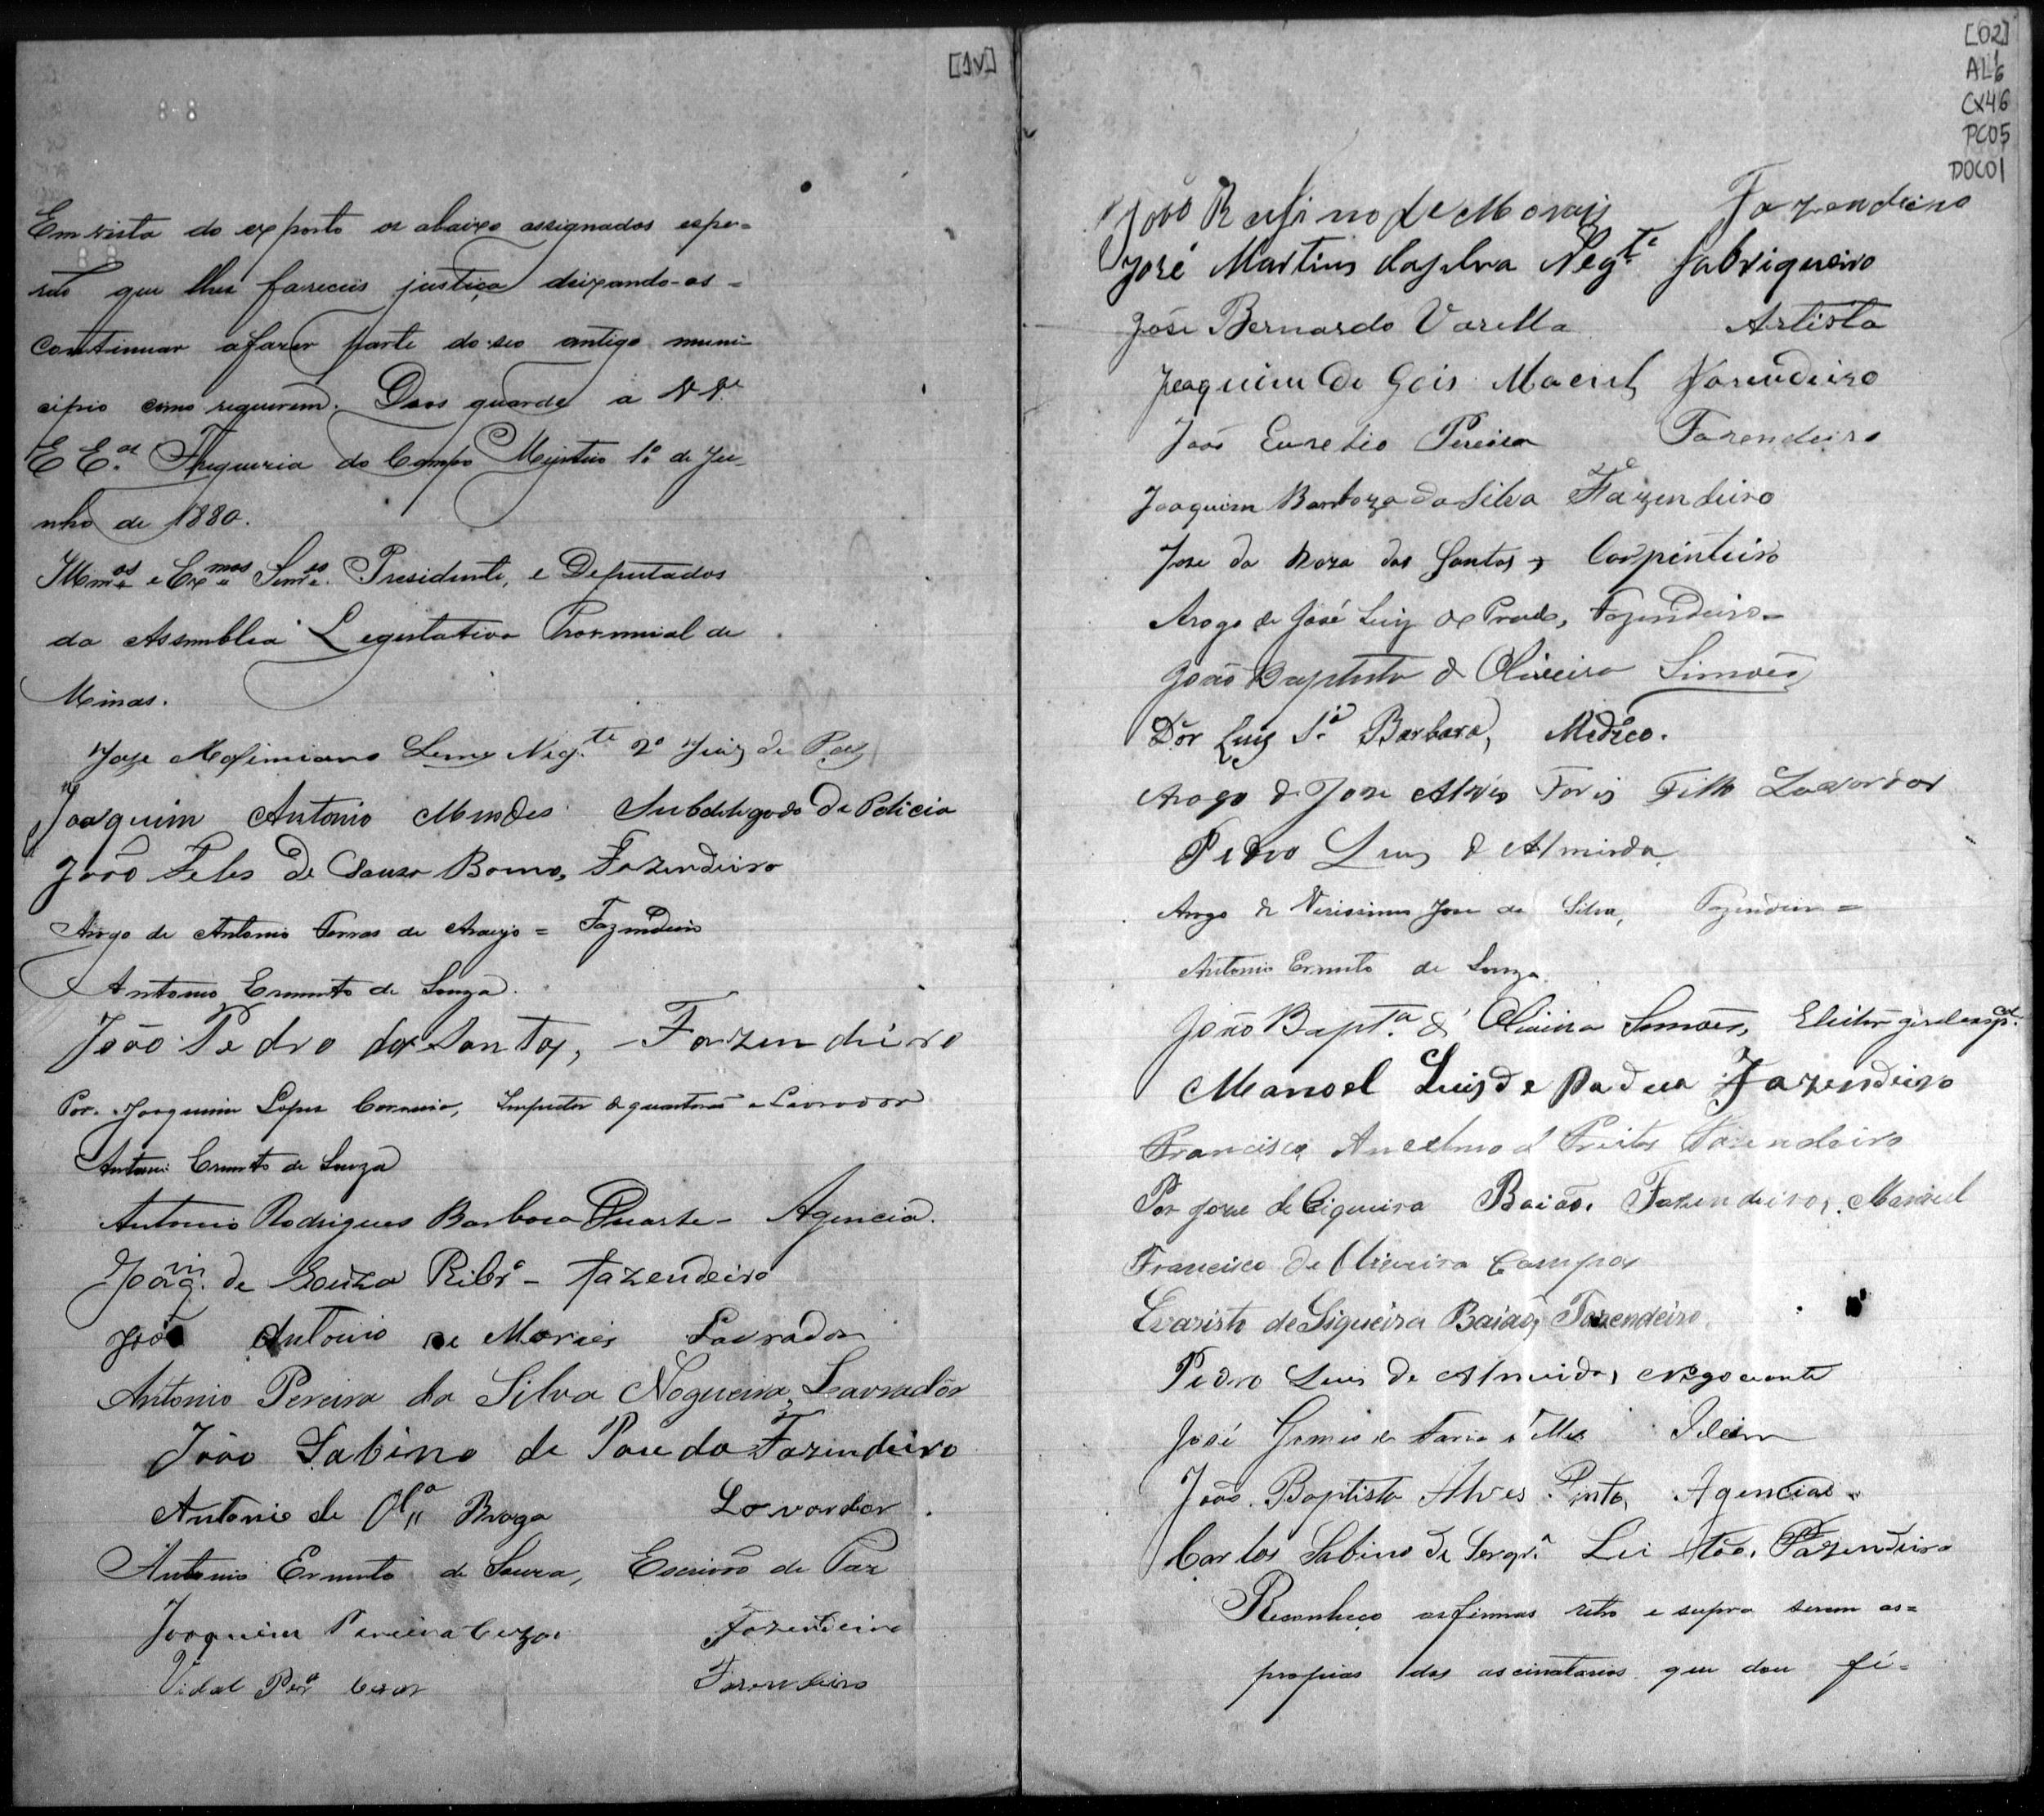 [1v]
Em vista do exposto os abaixo assignados espe=
rão que lhes fareceis justiça deixando-os=
continuar a fazer parte do seo antigo muni
cipio como requerem. Deos guarde a VVᵉ
EEᵃˢ Freguezia do Campo Mystico 1º de Ju-
nho de 1880.
Illmᵒˢ e Exᵐᵒˢ Senrᵉˢ Presidente, e Deputados
da Assemblea Legislativa Provinncial de
Minas.
Joze Maximiano Leme Negᵗᵉ 2º Juiz de Paz
Joaquim Antonio Mendes Subdelegado de Policia
João Teles de Souza Bomo, Fazendeiro
Arogo de Antonio de Araujo = Fazendeiro
Antonio Ernesto de Souza.
João Pedro dos Santos, - Fazendeiro
Por Joaquim Lopes Correia, Inspector de quarteirão e Lavrador
Antonio Ernesto de Souza
Antonio Rodrigues Barboza Duarte - Agencia.
Joaqᵐ de Souza Ribrº - fazendeiro
João Antonio de Moraes Lavrador
Antonio Pereira da Silva Nogueira, Lavrador
João Sabino de Paula Fazendeiro
Antonio de Olᵃ Braga Lavordor
Antonio Ernesto de Souza, Escrivão de Paz
Joaquim Pereira Cezar Fazendeiro
Vidal Perᵃ Cezar Fazendeiro
[02]
AL6
CX46
PC05
DOC01
João Rufino de Morais Fazendeiro
José Martins da Silva Negᵗᵉ fabriqueiro
José Bernardo Varella Artista
Joaquim de Gois Maciel Fazendeiro
João Euzebio Pereira Fazendeiro
Joaquim Barboza da Silva Fazendeiro
Jose da Roza dos Santos, Carpinteiro
Arogo de José Luiz de Prado, Fazendeiro=
João Baptista d Oliveira Simões
Dor Luiz Sᵗᵃ Barbara, Medico.
Arogo de Jose Alves Filho Lavordor
Pedro Luis d Almeida
Arogo de Verissimo Jose da Silva, Fazendeiro=
Antonio Ernesto de Souza
João Baptᵃ d' Oliveira Simões, Eleitor
Manoel Luis de Padua Fazendeiro
Francisco Anselmo d Freitas Fazendeiro
Por Joze de Siqueira Baião, Fazendeiro, Manoel
Francisco de Oliveira Campos
Evaristo de Siqueira Baião, Fazendeiro
Pedro Luis de Almeida, Negociante
José Gomes de Faria e Mello Idem
João Baptista Alves Pinto, Agencias
Carlos Sabino de Leitão, Fazendeiro
Reconheço as firmas retro e supra serem as=
proprias dos accinatarios que dou fé=